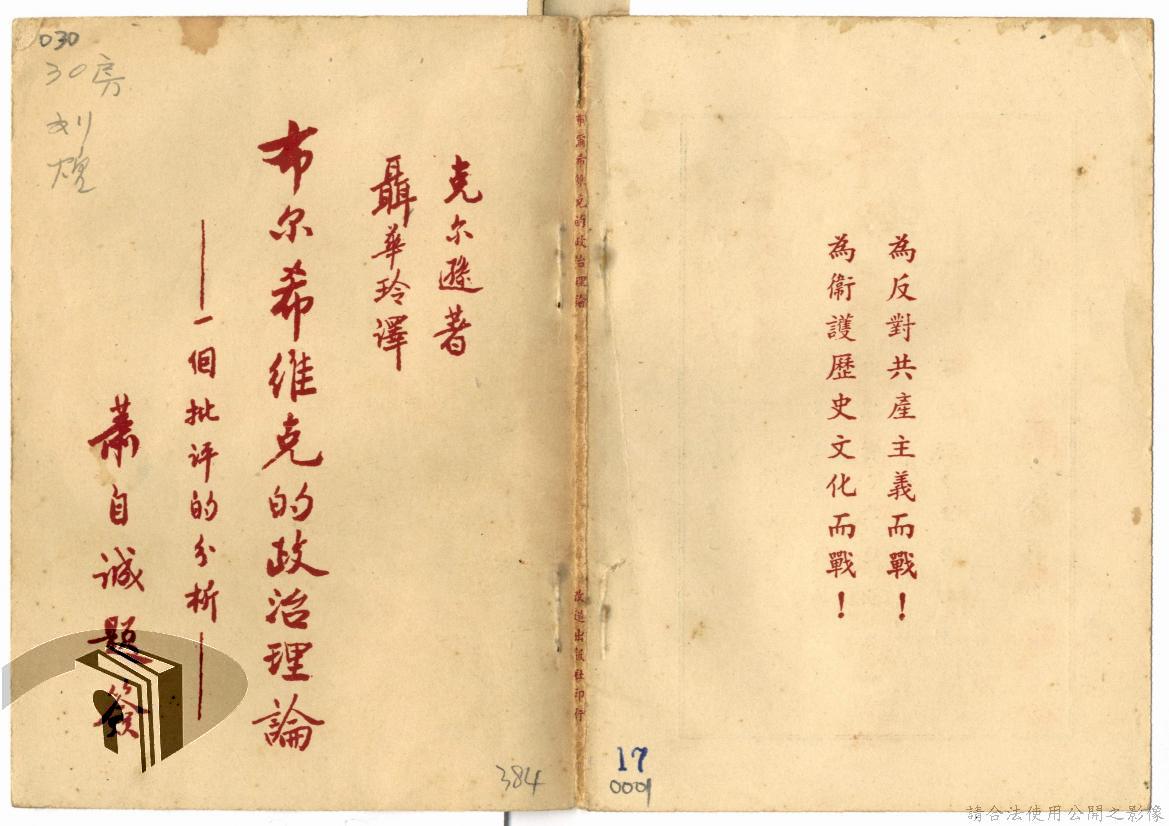 030
30房
刘
焜
克尔遜著
聶華玲譯
布尔希維克的政治理論
——一個批評的分析——
蕭自誠題簽
384
布爾希維克的政治理論
改造出版社印行
為反對共產主義而戰！
為衛護歷史文化而戰！
17
0001
請合法使用公開之影像